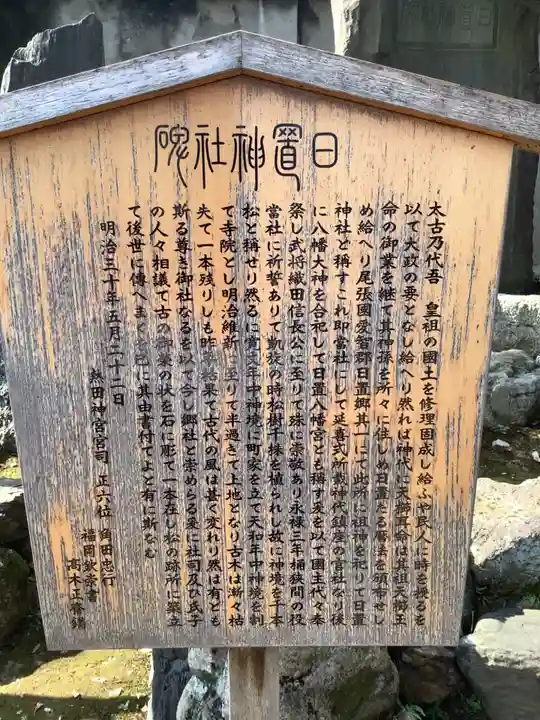 日置神社碑
太古乃代吾 皇祖の國土を修理固成し給ふや民人に時を授るを
以て大政の要となし給へり然れば神代に天櫛耳命は其祖天櫛玉
命の御業を継て其神孫を所々に住しめ日置たる暦法を頒布せし
め給へり尾張國愛智郡日置郷其一にて此所に祖神を祀りて日置
神社と稱すこれ即當社にして延喜式所載神代鎮座の官社なり後
に八幡大神を合祀して日置八幡宮とも稱す爰を以て國主代々奉
祭し武将織田信長公に至りて殊に崇敬あり永禄三年桶狭間の役
當社に祈誓ありて凱旋の時松樹千株を植られし故に神境を千本
松と稱せり然るに寛文年中神境に町家を立て天和年中神境を割
て寺院とし明治維新に至りて半過きて上地となり古木は漸々枯
失て一本残りしも昨年枯果て古代の風は甚く変れり然は有ども
斯る尊き御社なるを以て今し郷社と崇めらる爰に社司及ひ氏子
の人々相議て古の御榮の状を石に彫て一本在し松の跡所に築立
て後世に傳へまく己に其由書付てよと有に斯なむ
明治三十年五月二十二日
熱田神宮宮司 正六位 角田忠行
福岡欽崇書
高木正